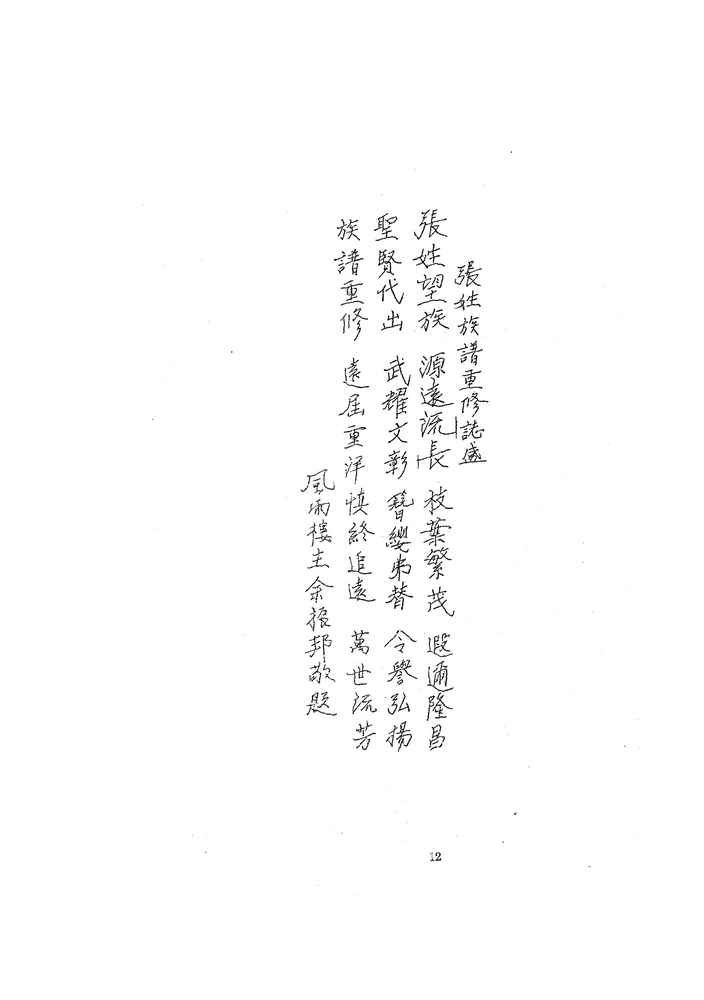 張姓族譜重修誌盛
張姓望族 源遠流長 枝葉繁茂 遐邇隆昌
聖賢代出 武耀文彰 簪纓弗替 令譽弘揚
族譜重修 遠届重洋 慎終追遠 萬世流芳
風雨樓主余振邦敬題
12